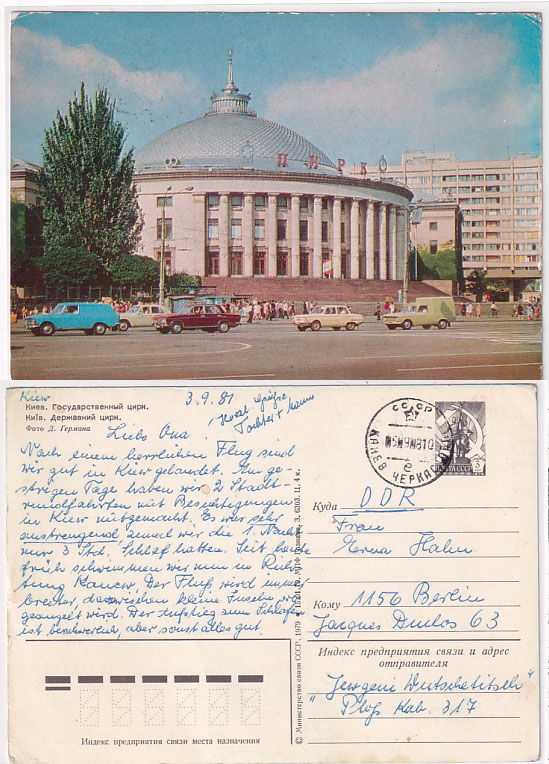 ЦИРК
Kiew
3.9.81
Киев. Государственный цирк.
Київ. Державний цирк.
Фото Д. Германа
Herzl. Grüße
Tochter + Mann
Liebe Oma,
Nach einem herrlichen Flug sind
wir gut in Kiew gelandet. Am ge-
strigen Tage haben wir 2 Stadt-
rundfahrten mit Besichtigungen
in Kiew mitgemacht. Es war sehr
anstrengend zumal wir die 1. Nacht
nur 3 Std. Schlaf hatten. Seit heute
früh schwimmen wir nun in Rich-
tung Kanew. Der Fluß wird immer
breiter, dazwischen kleine Inseln wo
geangelt wird. Der Aufstieg zum
ist beschwerlich, aber sonst alles gut.
СССР
КАНЕВ ЧЕРКАС
ПОЧТА СССР
Куда DDR
Frau
Erna Hahn
Кому 1156 Berlin
Jacques Duclos 63
Индекс предприятия связи и адрес
отправителя
"Jewgeni Wutschetitsch"
Kab. 317
© Министерство связи СССР, 1979
Индекс предприятия связи места назначения